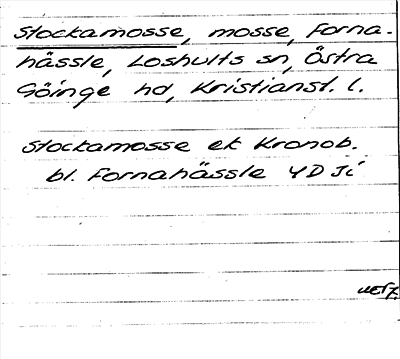 Stockamosse, mosse, Forna-
hässle, Loshults sn, Östra
Göinge hd, Kristianst. l.
Stockamosse ek Kronob.
bl. Fornahässle 4D Ji